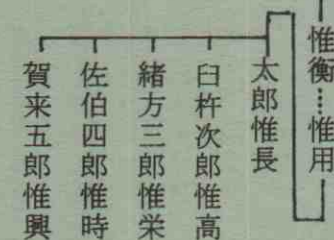 惟衡……惟用
太郎惟長
臼杵次郎惟高
緒方三郎惟栄
佐伯四郎惟時
賀来五郎惟興